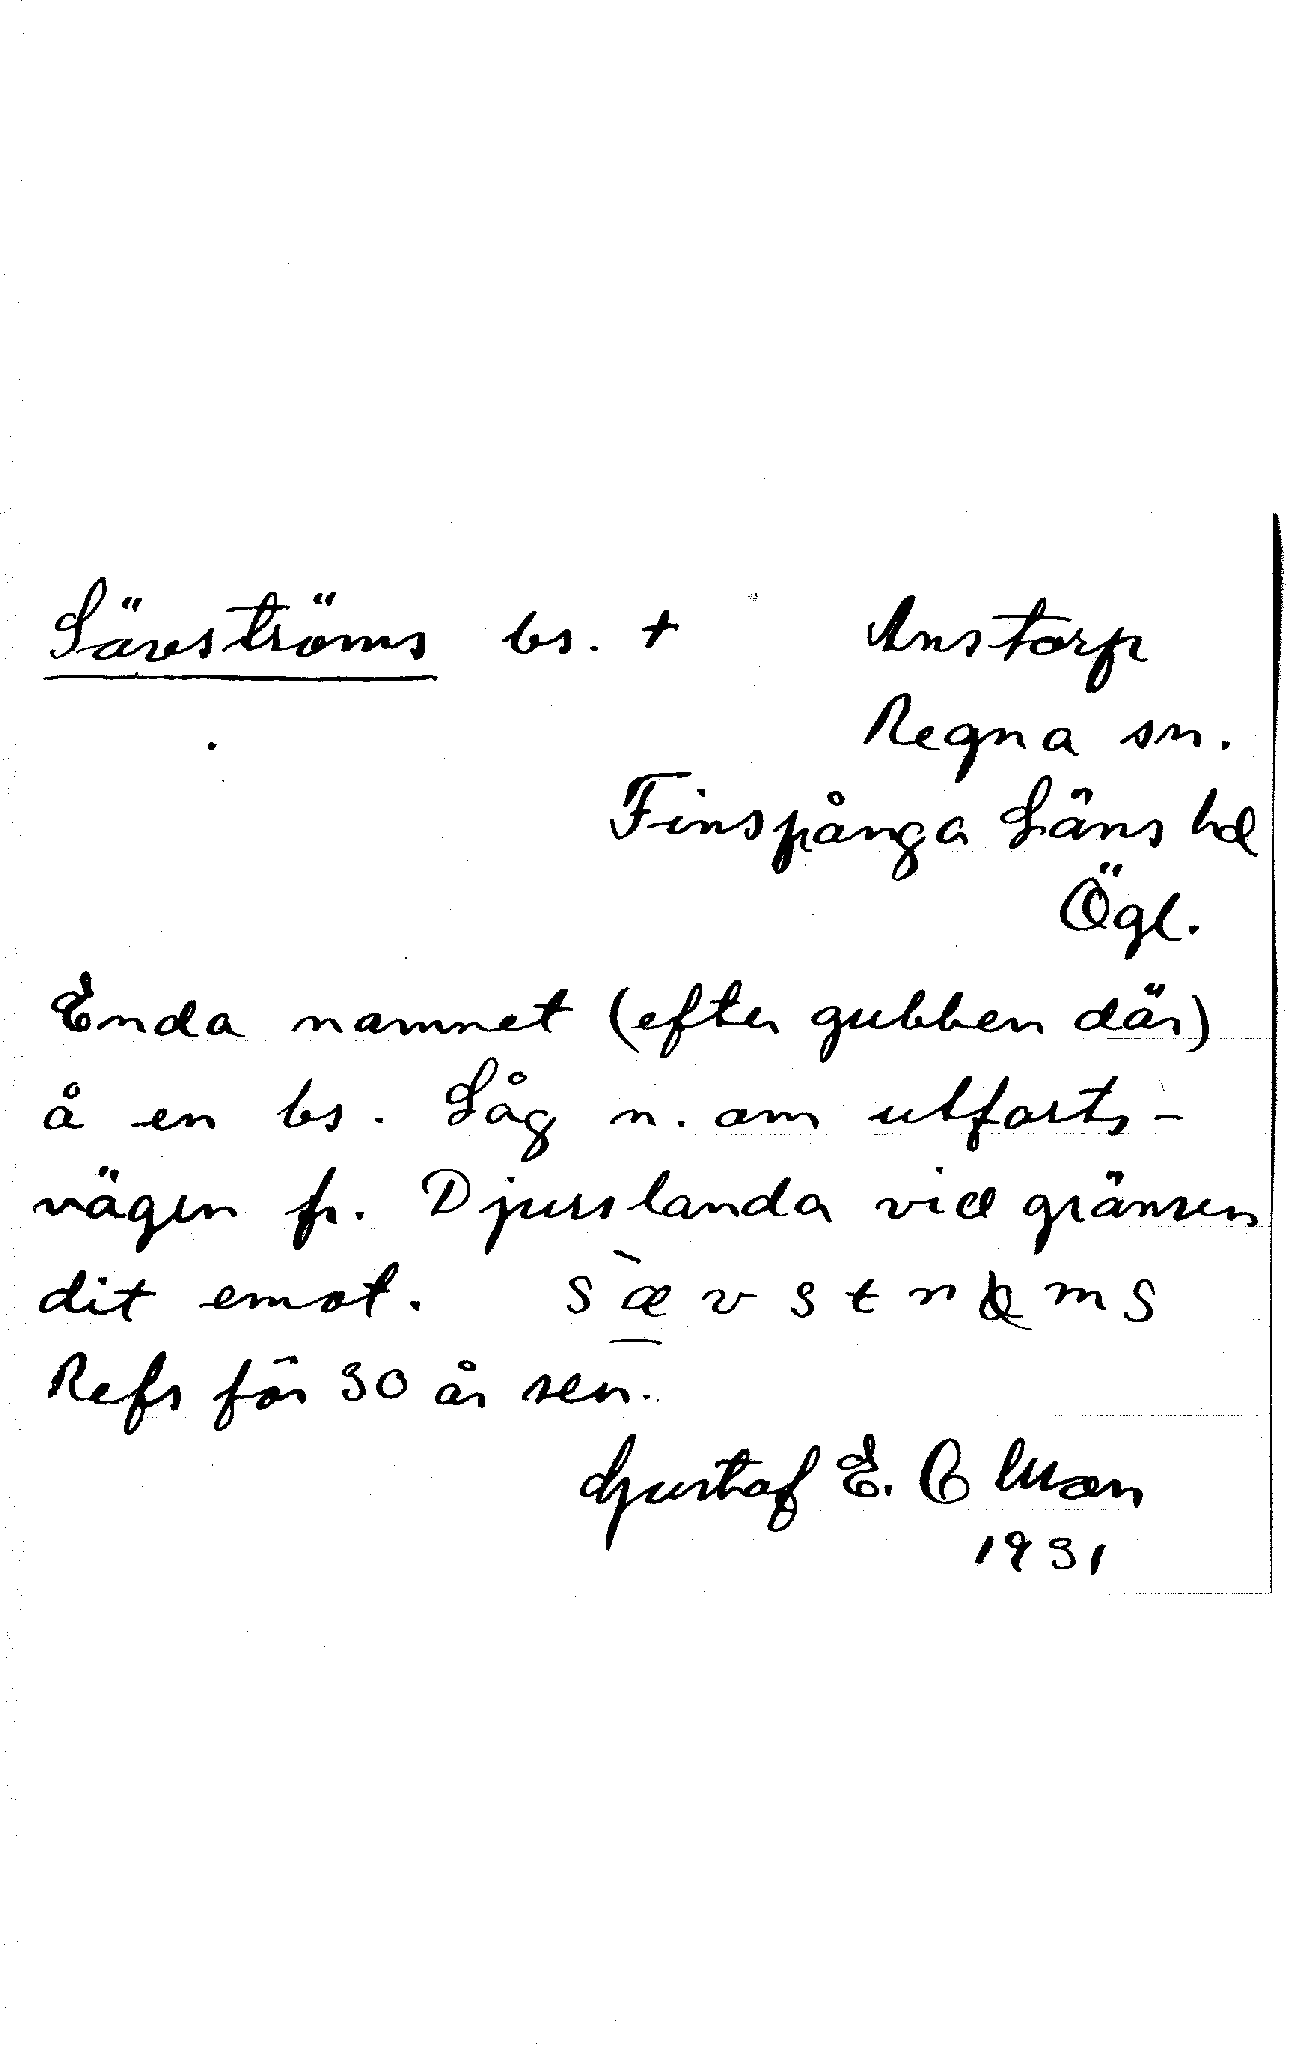 Sävströms bs. +
Anstorp
Regna sn.
Finspånga Läns hd
Ögl.
Enda namnet (efter gubben där)
å en bs. Låg n. om utfarts-
vägen fr. Djurslanda vid gränsen
dit emot. sævstrøms
Refs för 30 år sen.
Gustaf E. Olsson
1931